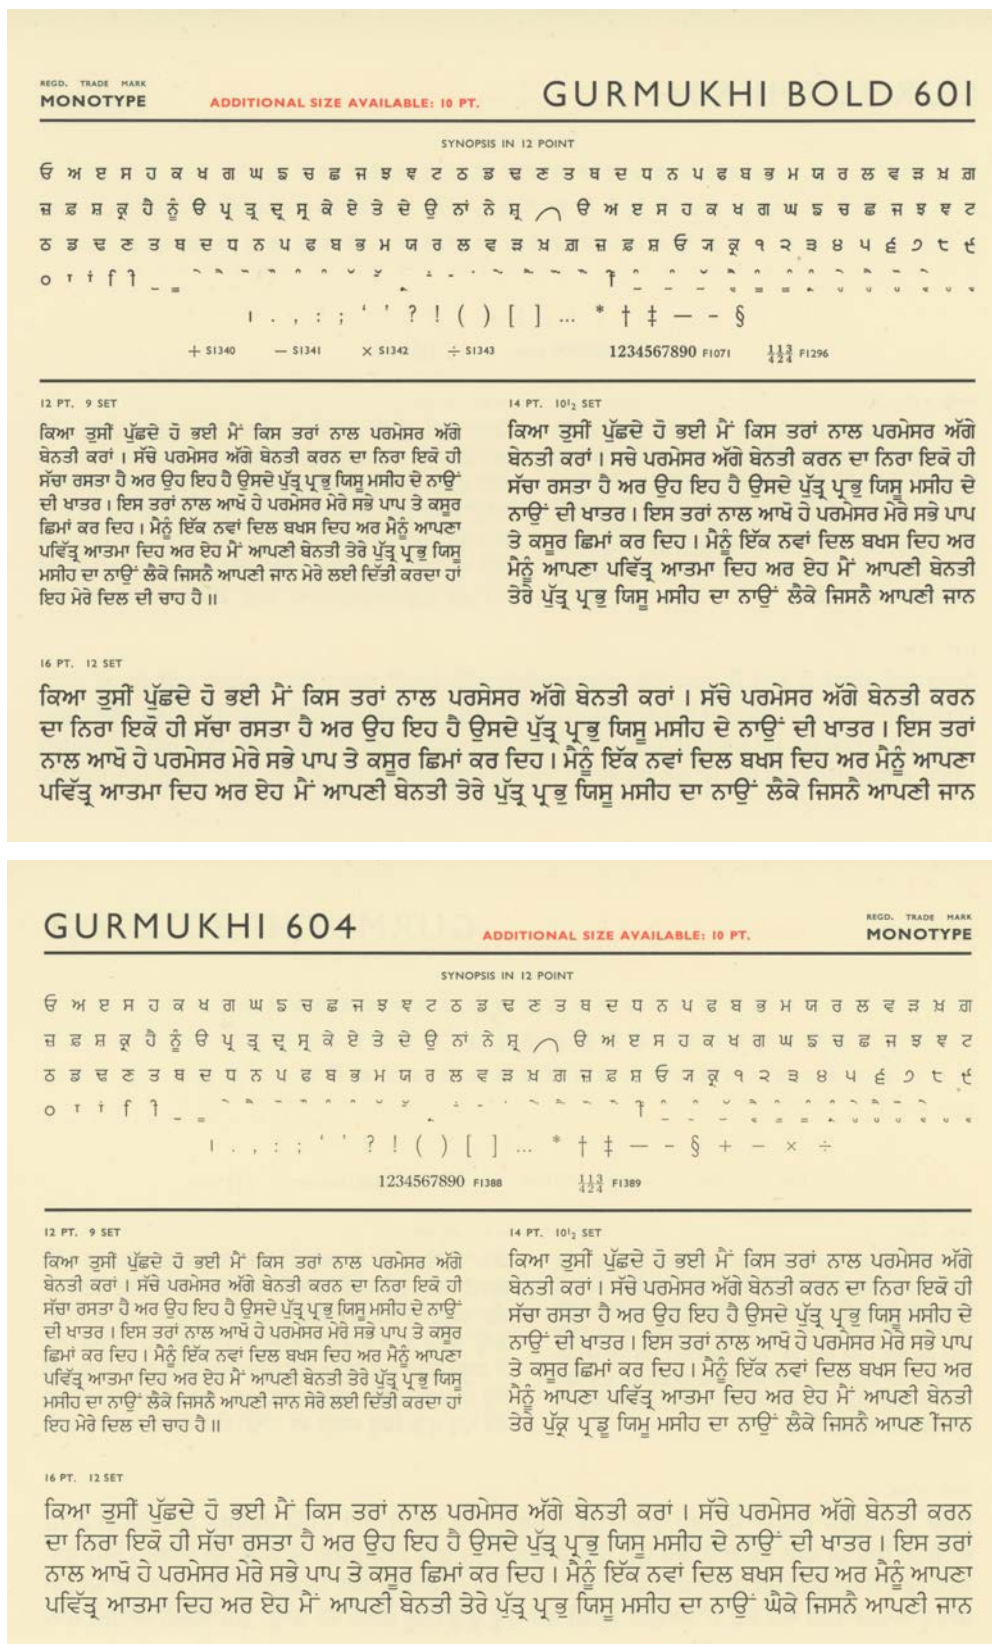 REGD. TRADE MARK
MONOTYPE ADDITIONAL SIZE AVAILABLE: 10 PT. GURMUKHI BOLD 601
SYNOPSIS IN 12 POINT
ਓ ਅ ੲ ਸ ਹ ਕ ਖ ਗ ਘ ਙ ਚ ਛ ਜ ਝ ਞ ਟ ਠ ਡ ਢ ਣ ਤ ਥ ਦ ਧ ਨ ਪ ਫ ਬ ਭ ਮ ਯ ਰ ਲ ਵ ੜ ਖ਼ ਗ਼
ਜ਼ ਫ਼ ਸ਼ ਕ੍ਰ ਹੈ ਨੂੰ ੳ ਪ੍ਰ ਤ੍ਰ ਦ੍ਰ ਸ੍ਰ ਕੇ ਏ ਤੇ ਦੇ ਉ ਨਾਂ ਨੇ ਸ਼੍ਰ ੳ ਅ ੲ ਸ ਹ ਕ ਖ ਗ ਘ ਙ ਚ ਛ ਜ ਝ ਞ ਟ
ਠ ਡ ਢ ਣ ਤ ਥ ਦ ਧ ਨ ਪ ਫ ਬ ਭ ਮ ਯ ਰ ਲ ਵ ੜ ਖ਼ ਗ਼ ਜ਼ ਫ਼ ਸ਼ ਓ ਕ੍ਰ ੧ ੨ ੩ ੪ ੫ ੬ ੭ ੮ ੯
੦
। . , : ; ‘ ’ ? ! ( ) [ ] ... * † ‡ — - §
+ S1340 — S1341 × S1342 ÷ S1343 1234567890 F1071 1/4 1/2 3/4 F1296
12 PT. 9 SET
ਕਿਆ ਤੁਸੀਂ ਪੁੱਛਦੇ ਹੋ ਭਈ ਮੈਂ ਕਿਸ ਤਰਾਂ ਨਾਲ ਪਰਮੇਸਰ ਅੱਗੇ
ਬੇਨਤੀ ਕਰਾਂ । ਸੱਚੇ ਪਰਮੇਸਰ ਅੱਗੇ ਬੇਨਤੀ ਕਰਨ ਦਾ ਨਿਰਾ ਇਕੋ ਹੀ
ਸੱਚਾ ਰਸਤਾ ਹੈ ਅਰ ਉਹ ਇਹ ਹੈ ਉਸਦੇ ਪੁੱਤ੍ਰ ਪ੍ਰਭੁ ਯਿਸੂ ਮਸੀਹ ਦੇ ਨਾਉਂ
ਦੀ ਖਾਤਰ । ਇਸ ਤਰਾਂ ਨਾਲ ਆਖੋ ਹੇ ਪਰਮੇਸਰ ਮੇਰੇ ਸਭੇ ਪਾਪ ਤੇ ਕਸੂਰ
ਛਿਮਾਂ ਕਰ ਦਿਹ । ਮੈਨੂੰ ਇੱਕ ਨਵਾਂ ਦਿਲ ਬਖਸ ਦਿਹ ਅਰ ਮੈਨੂੰ ਆਪਣਾ
ਪਵਿੱਤ੍ਰ ਆਤਮਾ ਦਿਹ ਅਰ ਏਹ ਮੈਂ ਆਪਣੀ ਬੇਨਤੀ ਤੇਰੇ ਪੁੱਤ੍ਰ ਪ੍ਰਭੁ ਯਿਸੂ
ਮਸੀਹ ਦਾ ਨਾਉਂ ਲੈਕੇ ਜਿਸਨੈ ਆਪਣੀ ਜਾਨ ਮੇਰੇ ਲਈ ਦਿੱਤੀ ਕਰਦਾ ਹਾਂ
ਇਹ ਮੇਰੇ ਦਿਲ ਦੀ ਚਾਹ ਹੈ ॥
14 PT. 10½ SET
ਕਿਆ ਤੁਸੀਂ ਪੁੱਛਦੇ ਹੋ ਭਈ ਮੈਂ ਕਿਸ ਤਰਾਂ ਨਾਲ ਪਰਮੇਸਰ ਅੱਗੇ
ਬੇਨਤੀ ਕਰਾਂ । ਸਚੇ ਪਰਮੇਸਰ ਅੱਗੇ ਬੇਨਤੀ ਕਰਨ ਦਾ ਨਿਰਾ ਇਕੋ ਹੀ
ਸੱਚਾ ਰਸਤਾ ਹੈ ਅਰ ਉਹ ਇਹ ਹੈ ਉਸਦੇ ਪੁੱਤ੍ਰ ਪ੍ਰਭੁ ਯਿਸੂ ਮਸੀਹ ਦੇ
ਨਾਉਂ ਦੀ ਖਾਤਰ । ਇਸ ਤਰਾਂ ਨਾਲ ਆਖੋ ਹੇ ਪਰਮੇਸਰ ਮੇਰੇ ਸਭੇ ਪਾਪ
ਤੇ ਕਸੂਰ ਛਿਮਾਂ ਕਰ ਦਿਹ । ਮੈਨੂੰ ਇੱਕ ਨਵਾਂ ਦਿਲ ਬਖਸ ਦਿਹ ਅਰ
ਮੈਨੂੰ ਆਪਣਾ ਪਵਿੱਤ੍ਰ ਆਤਮਾ ਦਿਹ ਅਰ ਏਹ ਮੈਂ ਆਪਣੀ ਬੇਨਤੀ
ਤੇਰੇ ਪੁੱਤ੍ਰ ਪ੍ਰਭੁ ਯਿਸੂ ਮਸੀਹ ਦਾ ਨਾਉਂ ਲੈਕੇ ਜਿਸਨੈ ਆਪਣੀ ਜਾਨ
16 PT. 12 SET
ਕਿਆ ਤੁਸੀਂ ਪੁੱਛਦੇ ਹੋ ਭਈ ਮੈਂ ਕਿਸ ਤਰਾਂ ਨਾਲ ਪਰਸੇਸਰ ਅੱਗੇ ਬੇਨਤੀ ਕਰਾਂ । ਸੱਚੇ ਪਰਮੇਸਰ ਅੱਗੇ ਬੇਨਤੀ ਕਰਨ
ਦਾ ਨਿਰਾ ਇਕੋ ਹੀ ਸੱਚਾ ਰਸਤਾ ਹੈ ਅਰ ਉਹ ਇਹ ਹੈ ਉਸਦੇ ਪੁੱਤ੍ਰ ਪ੍ਰਭੁ ਯਿਸੂ ਮਸੀਹ ਦੇ ਨਾਉਂ ਦੀ ਖਾਤਰ । ਇਸ ਤਰਾਂ
ਨਾਲ ਆਖੋ ਹੇ ਪਰਮੇਸਰ ਮੇਰੇ ਸਭੇ ਪਾਪ ਤੇ ਕਸੂਰ ਛਿਮਾਂ ਕਰ ਦਿਹ । ਮੈਨੂੰ ਇੱਕ ਨਵਾਂ ਦਿਲ ਬਖਸ ਦਿਹ ਅਰ ਮੈਨੂੰ ਆਪਣਾ
ਪਵਿੱਤ੍ਰ ਆਤਮਾ ਦਿਹ ਅਰ ਏਹ ਮੈਂ ਆਪਣੀ ਬੇਨਤੀ ਤੇਰੇ ਪੁੱਤ੍ਰ ਪ੍ਰਭੁ ਯਿਸੂ ਮਸੀਹ ਦਾ ਨਾਉਂ ਲੈਕੇ ਜਿਸਨੈ ਆਪਣੀ ਜਾਨ
GURMUKHI 604 ADDITIONAL SIZE AVAILABLE: 10 PT. REGD. TRADE MARK
MONOTYPE
SYNOPSIS IN 12 POINT
ਓ ਅ ੲ ਸ ਹ ਕ ਖ ਗ ਘ ਙ ਚ ਛ ਜ ਝ ਞ ਟ ਠ ਡ ਢ ਣ ਤ ਥ ਦ ਧ ਨ ਪ ਫ ਬ ਭ ਮ ਯ ਰ ਲ ਵ ੜ ਖ਼ ਗ਼
ਜ਼ ਫ਼ ਸ਼ ਕ੍ਰ ਹੈ ਨੂੰ ੳ ਪ੍ਰ ਤ੍ਰ ਦ੍ਰ ਸ੍ਰ ਕੇ ਏ ਤੇ ਦੇ ਉ ਨਾਂ ਨੇ ਸ਼੍ਰ ੳ ਅ ੲ ਸ ਹ ਕ ਖ ਗ ਘ ਙ ਚ ਛ ਜ ਝ ਞ ਟ
ਠ ਡ ਢ ਣ ਤ ਥ ਦ ਧ ਨ ਪ ਫ ਬ ਭ ਮ ਯ ਰ ਲ ਵ ੜ ਖ਼ ਗ਼ ਜ਼ ਫ਼ ਸ਼ ਓ ਕ੍ਰ ੧ ੨ ੩ ੪ ੫ ੬ ੭ ੮ ੯
੦
। . , : ; ‘ ’ ? ! ( ) [ ] ... * † ‡ — - § + − × ÷
1234567890 F1388 1/4 1/2 3/4 F1389
12 PT. 9 SET
ਕਿਆ ਤੁਸੀਂ ਪੁੱਛਦੇ ਹੋ ਭਈ ਮੈਂ ਕਿਸ ਤਰਾਂ ਨਾਲ ਪਰਮੇਸਰ ਅੱਗੇ
ਬੇਨਤੀ ਕਰਾਂ । ਸੱਚੇ ਪਰਮੇਸਰ ਅੱਗੇ ਬੇਨਤੀ ਕਰਨ ਦਾ ਨਿਰਾ ਇਕੋ ਹੀ
ਸੱਚਾ ਰਸਤਾ ਹੈ ਅਰ ਉਹ ਇਹ ਹੈ ਉਸਦੇ ਪੁੱਤ੍ਰ ਪ੍ਰਭੁ ਯਿਸੂ ਮਸੀਹ ਦੇ ਨਾਉਂ
ਦੀ ਖਾਤਰ । ਇਸ ਤਰਾਂ ਨਾਲ ਆਖੋ ਹੇ ਪਰਮੇਸਰ ਮੇਰੇ ਸਭੇ ਪਾਪ ਤੇ ਕਸੂਰ
ਛਿਮਾਂ ਕਰ ਦਿਹ । ਮੈਨੂੰ ਇੱਕ ਨਵਾਂ ਦਿਲ ਬਖਸ ਦਿਹ ਅਰ ਮੈਨੂੰ ਆਪਣਾ
ਪਵਿੱਤ੍ਰ ਆਤਮਾ ਦਿਹ ਅਰ ਏਹ ਮੈਂ ਆਪਣੀ ਬੇਨਤੀ ਤੇਰੇ ਪੁੱਤ੍ਰ ਪ੍ਰਭੁ ਯਿਸੂ
ਮਸੀਹ ਦਾ ਨਾਉਂ ਲੈਕੇ ਜਿਸਨੈ ਆਪਣੀ ਜਾਨ ਸੇਰੇ ਲਈ ਦਿੱਤੀ ਕਰਦਾ ਹਾਂ
ਇਹ ਮੇਰੇ ਦਿਲ ਦੀ ਚਾਹ ਹੈ ॥
14 PT. 10½ SET
ਕਿਆ ਤੁਸੀਂ ਪੁੱਛਦੇ ਹੋ ਭਈ ਮੈਂ ਕਿਸ ਤਰਾਂ ਨਾਲ ਪਰਮੇਸਰ ਅੱਗੇ
ਬੇਨਤੀ ਕਰਾਂ । ਸੱਚੇ ਪਰਮੇਸਰ ਅੱਗੇ ਬੇਨਤੀ ਕਰਨ ਦਾ ਨਿਰਾ ਇਕੋ ਹੀ
ਸੱਚਾ ਰਸਤਾ ਹੈ ਅਰ ਉਹ ਇਹ ਹੈ ਉਸਦੇ ਪੁੱਤ੍ਰ ਪ੍ਰਭੁ ਯਿਸੂ ਮਸੀਹ ਦੇ
ਨਾਉਂ ਦੀ ਖਾਤਰ । ਇਸ ਤਰਾਂ ਨਾਲ ਆਖੋ ਹੇ ਪਰਮੇਸਰ ਮੇਰੇ ਸਭੇ ਪਾਪ
ਤੇ ਕਸੂਰ ਛਿਮਾਂ ਕਰ ਦਿਹ । ਮੈਨੂੰ ਇੱਕ ਨਵਾਂ ਦਿਲ ਬਖਸ ਦਿਹ ਅਰ
ਮੈਨੂੰ ਆਪਣਾ ਪਵਿੱਤ੍ਰ ਆਤਮਾ ਦਿਹ ਅਰ ਏਹ ਮੈਂ ਆਪਣੀ ਬੇਨਤੀ
ਤੇਰੇ ਪੁੱਕ੍ਰ ਪ੍ਰਡੂ ਯਿਮੂ ਮਸੀਹ ਦਾ ਨਾਉਂ ਲੈਕੇ ਜਿਸਨੈ ਆਪਣ ੀਂਜਾਨ
16 PT. 12 SET
ਕਿਆ ਤੁਸੀਂ ਪੁੱਛਦੇ ਹੋ ਭਈ ਮੈਂ ਕਿਸ ਤਰਾਂ ਨਾਲ ਪਰਮੇਸਰ ਅੱਗੇ ਬੇਨਤੀ ਕਰਾਂ । ਸੱਚੇ ਪਰਮੇਸਰ ਅੱਗੇ ਬੇਨਤੀ ਕਰਨ
ਦਾ ਨਿਰਾ ਇਕੋ ਹੀ ਸੱਚਾ ਰਸਤਾ ਹੈ ਅਰ ਉਹ ਇਹ ਹੈ ਉਸਦੇ ਪੁੱਤ੍ਰ ਪ੍ਰਭੁ ਯਿਸੂ ਮਸੀਹ ਦੇ ਨਾਉਂ ਦੀ ਖਾਤਰ । ਇਸ ਤਰਾਂ
ਨਾਲ ਆਖੋ ਹੇ ਪਰਮੇਸਰ ਮੇਰੇ ਸਭੇ ਪਾਪ ਤੇ ਕਸੂਰ ਛਿਮਾਂ ਕਰ ਦਿਹ । ਮੈਨੂੰ ਇੱਕ ਨਵਾਂ ਦਿਲ ਬਖਸ ਦਿਹ ਅਰ ਮੈਨੂੰ ਆਪਣਾ
ਪਵਿੱਤ੍ਰ ਆਤਮਾ ਦਿਹ ਅਰ ਏਹ ਮੈਂ ਆਪਣੀ ਬੇਨਤੀ ਤੇਰੇ ਪੁੱਤ੍ਰ ਪ੍ਰਭੁ ਯਿਸੂ ਮਸੀਹ ਦਾ ਨਾਉਂ ਘੈਕੇ ਜਿਸਨੈ ਆਪਣੀ ਜਾਨ